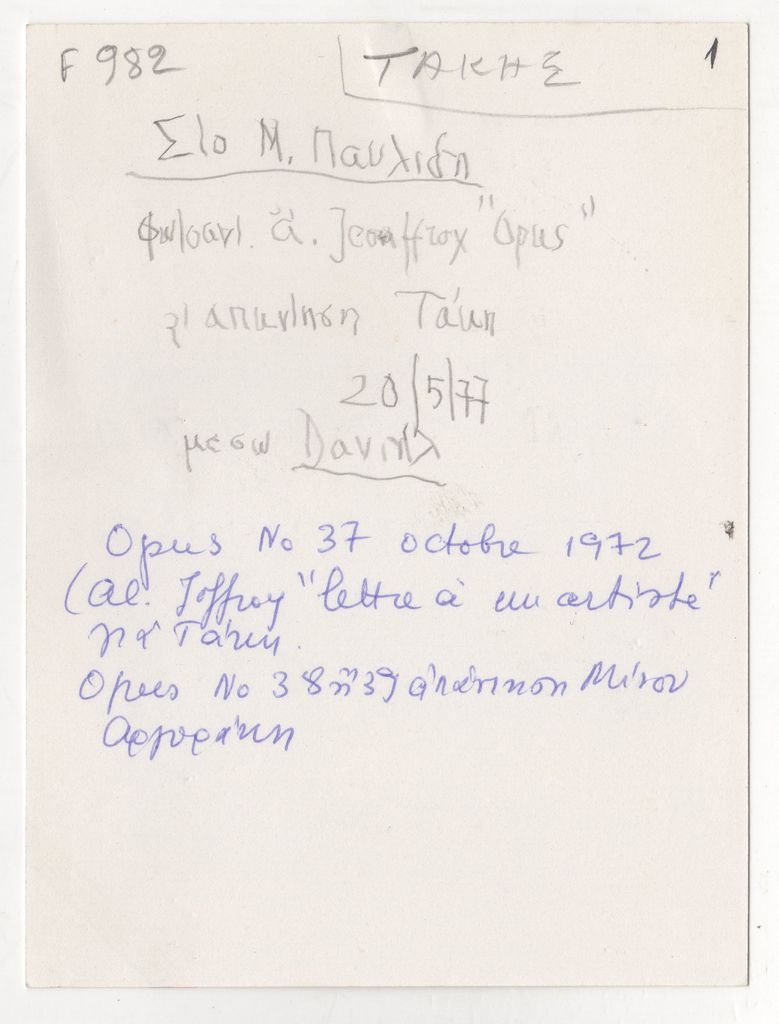 F 982 ΤΑΚΗΣ 1
Στο Μ. Παυλίδη
φωτοαντ. ἄ. Jeouffroy "Opus"
γι απαντηση Τάκη
20/5/77
μεσω Δανιήλ
Opus No 37 octobre 1972
(Al. Joffroy "lettre à un artiste"
γιά Τάκη.
Opus No 38 ἤ 39 ἀπάντηση Μίνου
Αργυράκη